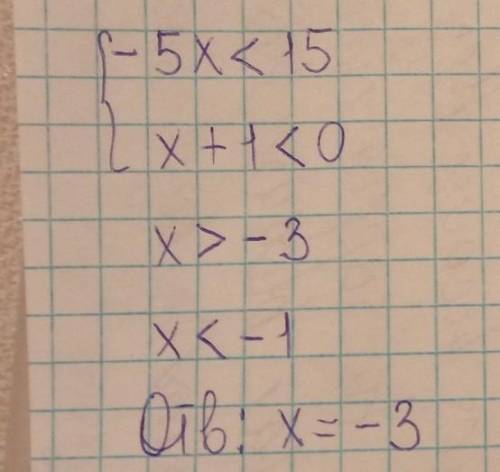 {-5x < 15
x + 1 < 0
x > -3
x < -1
Отв: x = -3